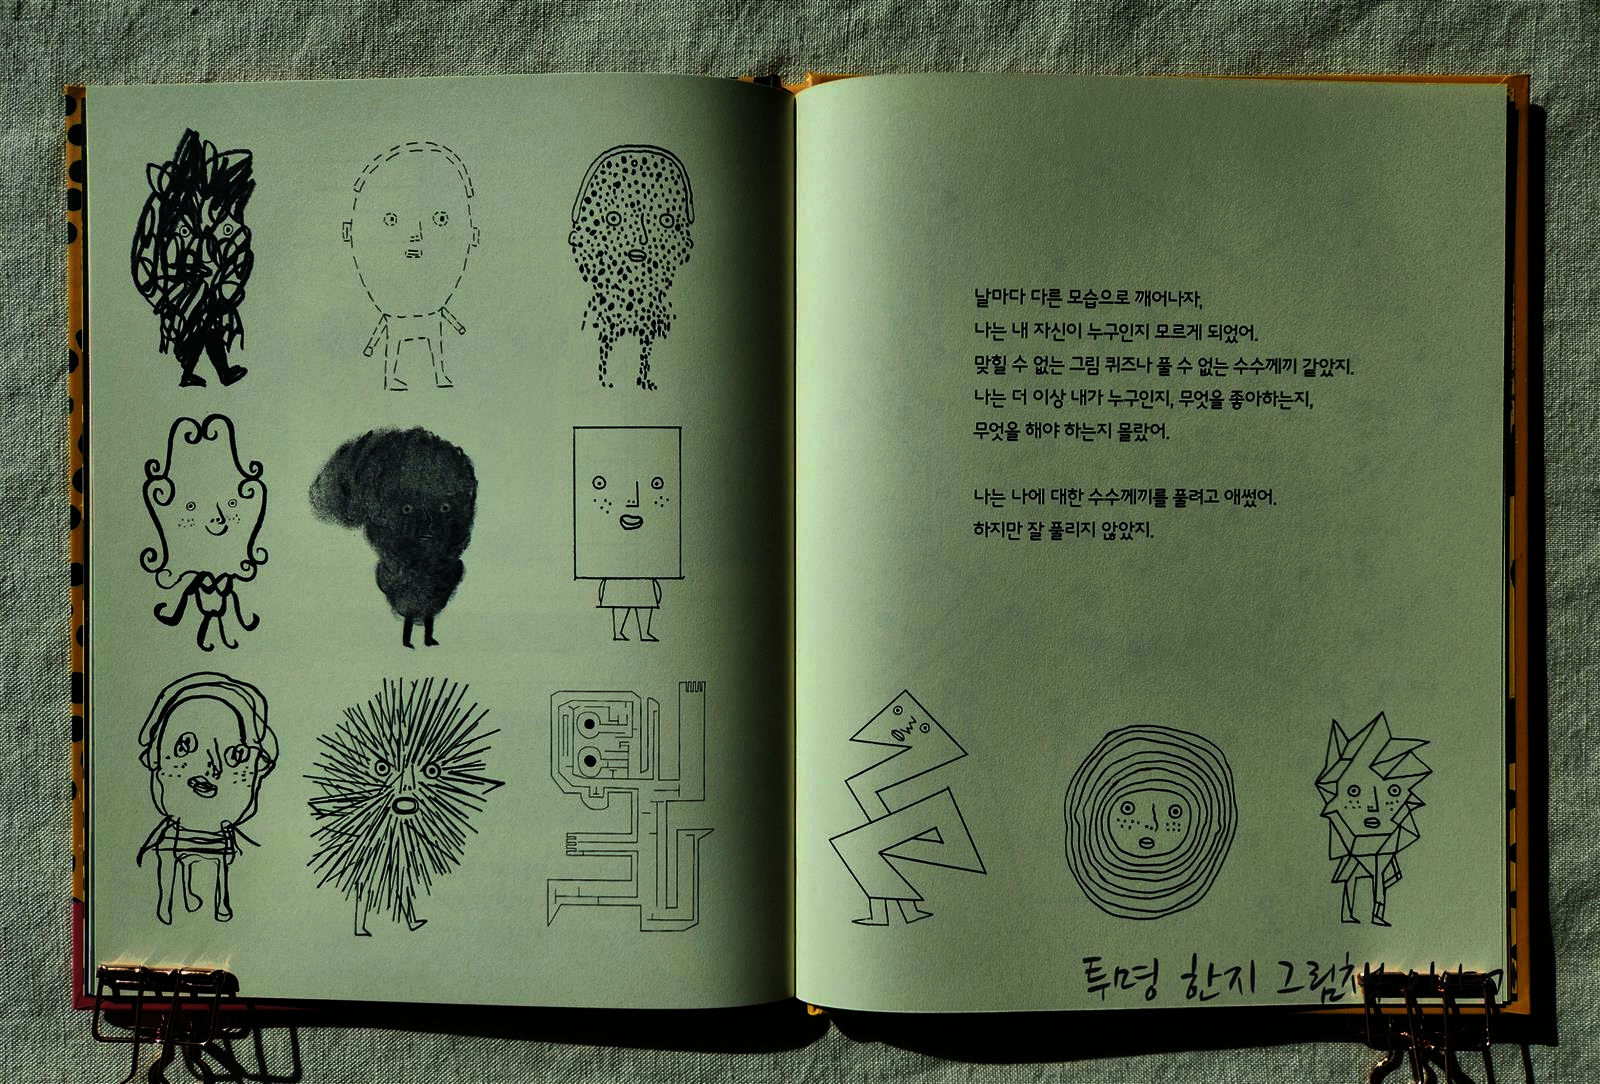 날마다 다른 모습으로 깨어나자,
나는 내 자신이 누구인지 모르게 되었어.
맞힐 수 없는 그림 퀴즈나 풀 수 없는 수수께끼 같았지.
나는 더 이상 내가 누구인지, 무엇을 좋아하는지,
무엇을 해야 하는지 몰랐어.
나는 나에 대한 수수께끼를 풀려고 애썼어.
하지만 잘 풀리지 않았지.
투명 한지 그림책